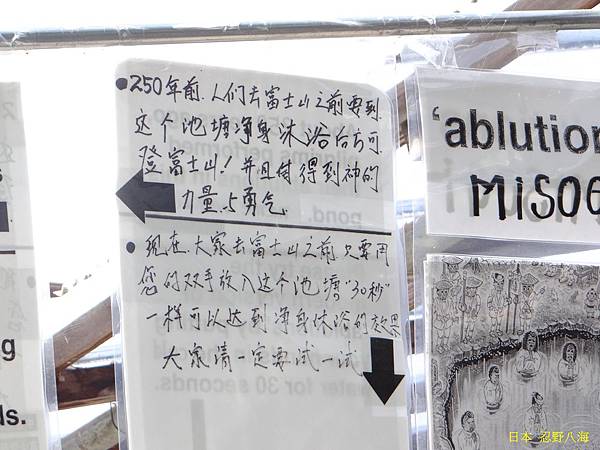 •250年前.人们去富士山之前要到
这个池塘净身沐浴后方可
登富士山!并且付得到神的
力量与勇气.
•现在.大家去富士山之前只要用
您的双手放入这个池塘"30秒"
一样可以达到净身沐浴的效果
大家请一定要试一试
'ablution
MISOG
s
g
ds.
pond.
water for 30 seconds.
日本 忍野八海